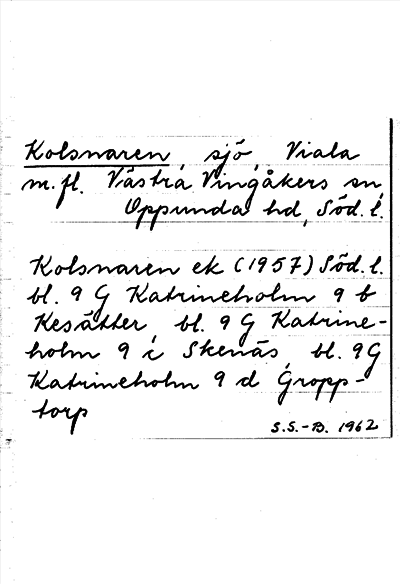 Kolsnaren, sjö, Viala
m.fl. Västra Vingåkers sn,
Oppunda hd, Söd. l.
Kolsnaren ek (1957) Söd. l.
bl. 9 G Katrineholm 9 b
Kesätter, bl. 9 G Katrine-
holm 9 c Skenäs, bl. 9G
Katrineholm 9 d Gropp-
torp
S.S.-B. 1962